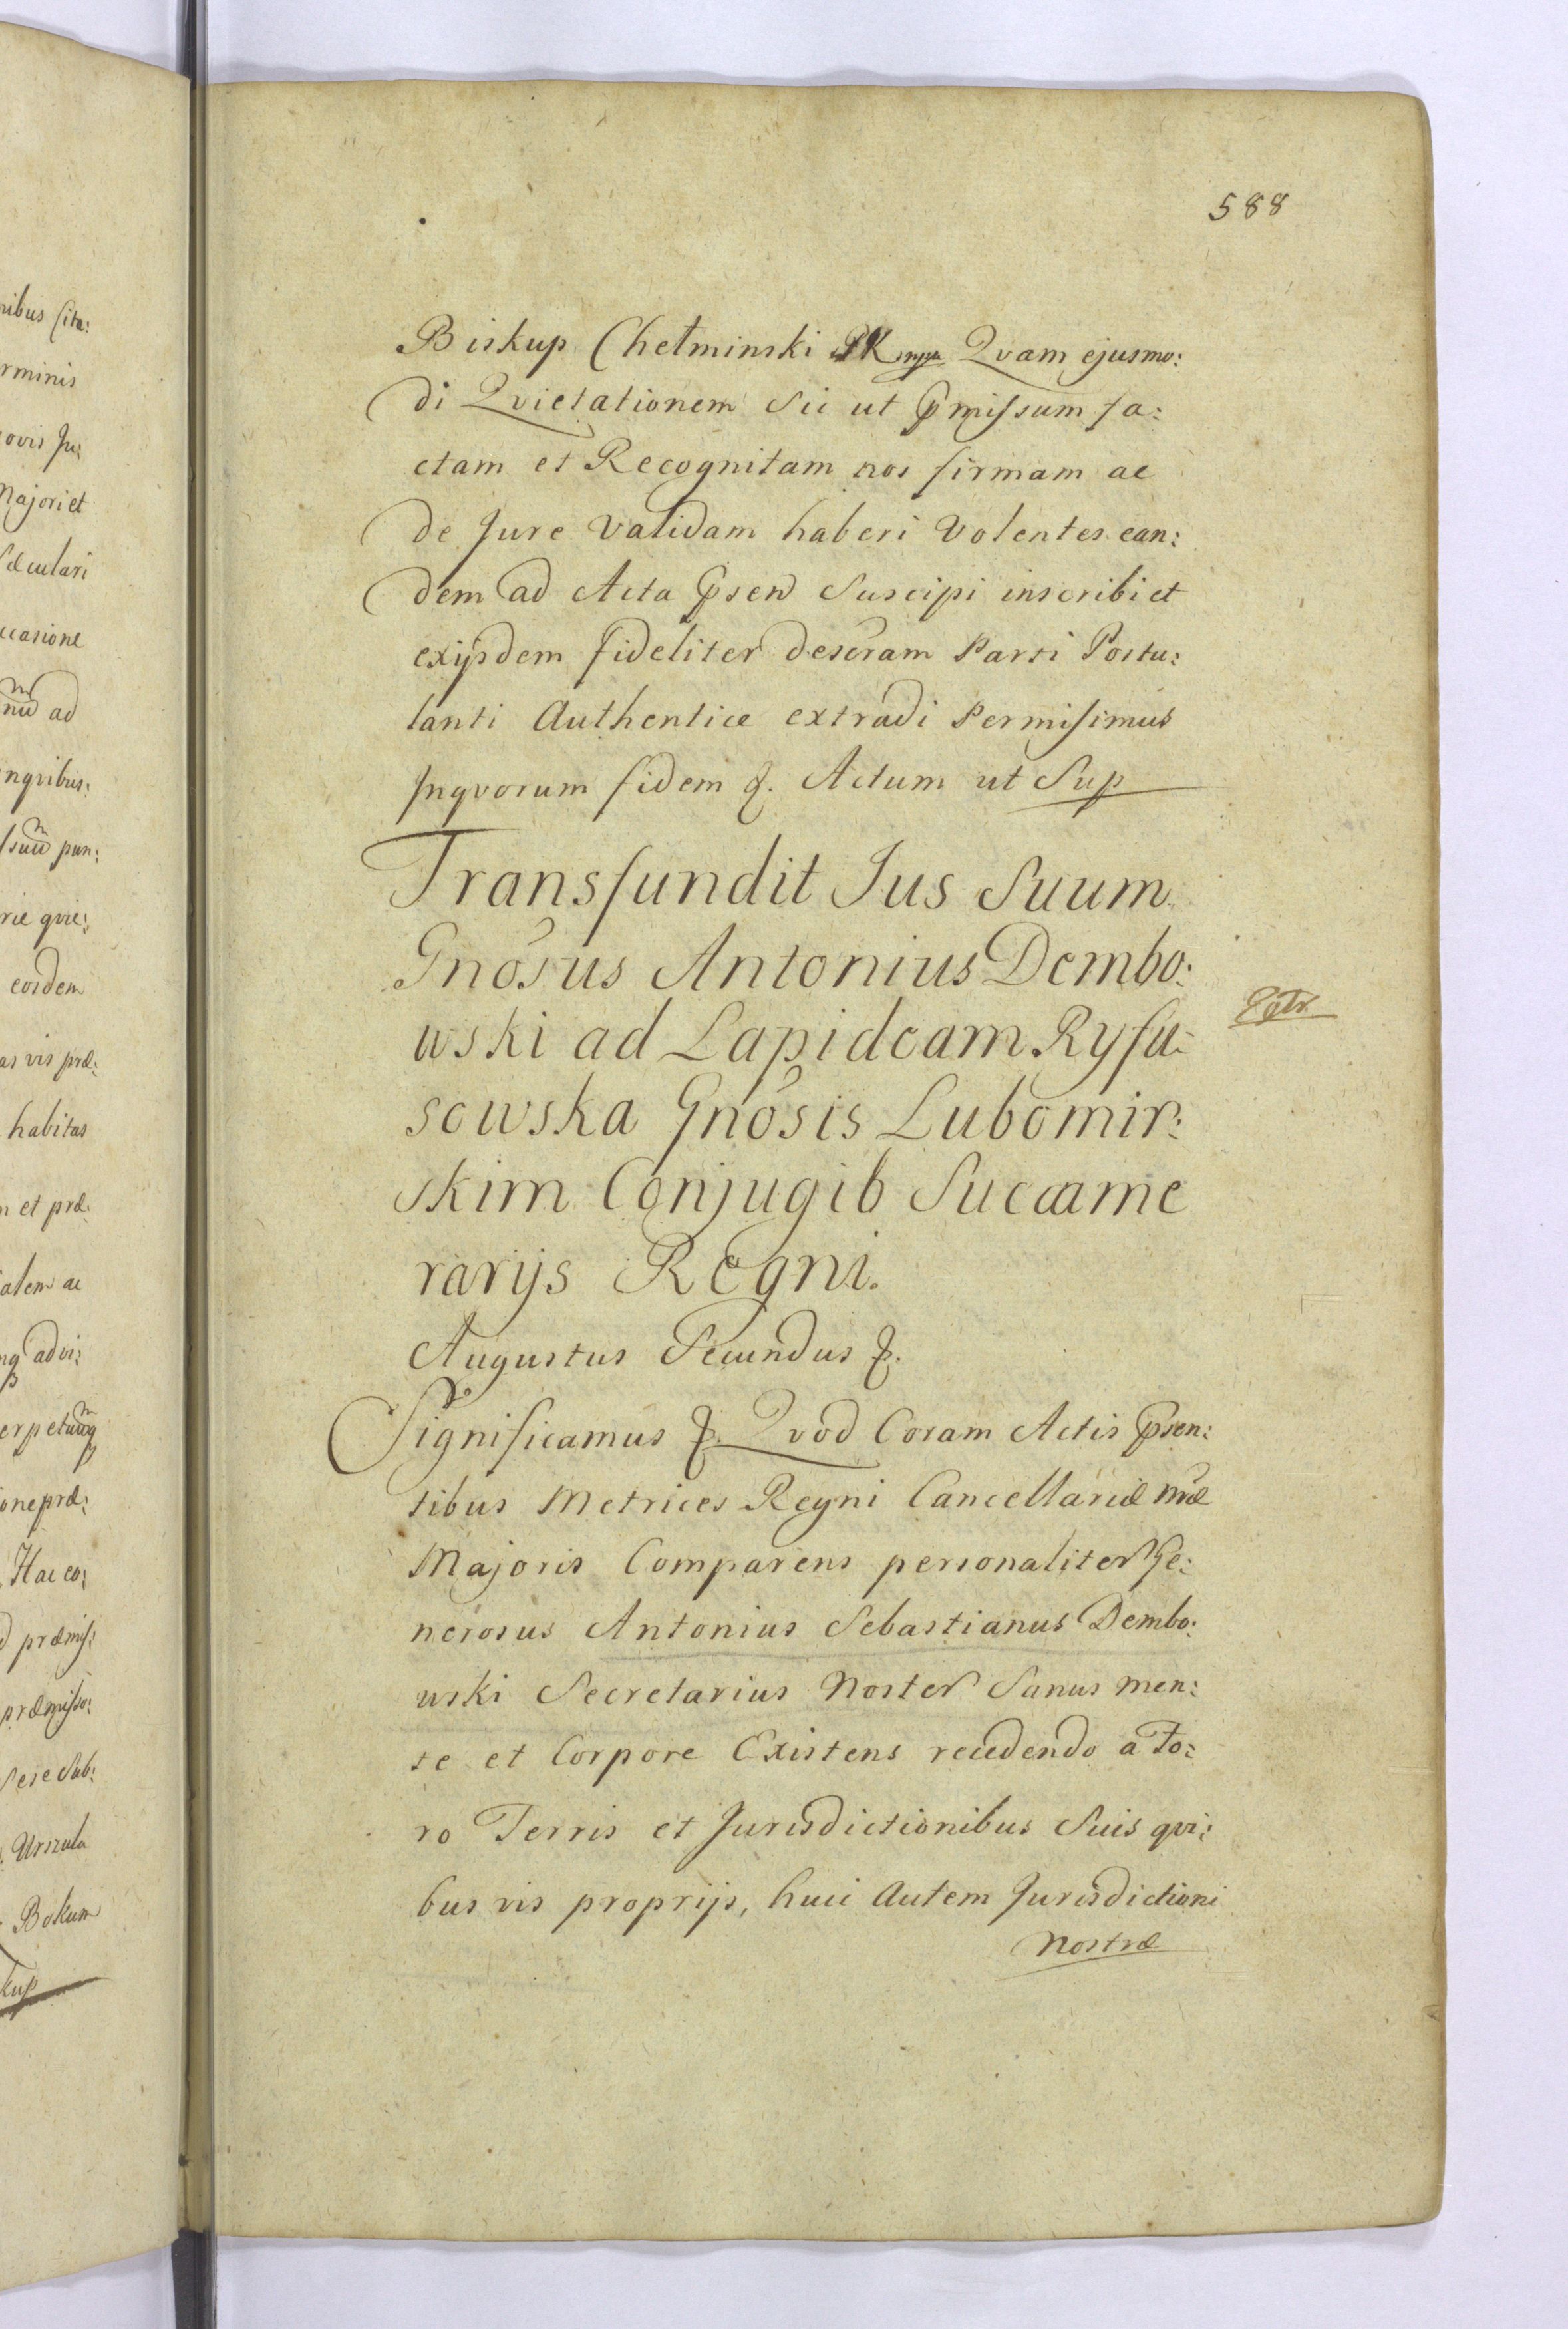 588
Biskup Chełminski PK mpp Qvam ejusmo:
di Qvietationem Sic ut pmissum fa:
ctam et Recognitam nos firmam ac
de Jure Validam haberi Volentes ean:
dem ad Acta psen Suscipi inscribi et
exijsdem fideliter descram Parti Postu:
lanti Authentice extradi Permisimus
Inqvorum fidem &. Actum ut Sup
Transfundit Jus Suum
Gnosus Antonius Dembo:
wski ad Lapideam Ryfu:
sowska Gnosis Lubomir:
skim Conjugib Succame
rarijs Regni.
Augustus Secundus &.
Significamus &. Qvod Coram Actis psen:
tibus Metrices Regni Cancellariæ nræ
Majoris Comparens personaliter Ge:
nerosus Antonius Sebastianus Dembo:
wski Secretarius Noster Sanus men:
te et Corpore Existens recedendo a Fo:
ro Terris et Jurisdictionibus Suis qvi:
bus vis proprijs, huic Autem Jurisdictioni
Nostræ
nibus Cita:
rminis
ovis Ju:
Majori et
Sæculari
ccasione
ad
nqvibus:
pun:
rie qvie:
eosdem
as vis præ:
habitas
et præ
alem ac
ad vi:
one præ:
Hac co:
præmis:
præmisso:
Sese Sub:
Urszula
Bokum
kup